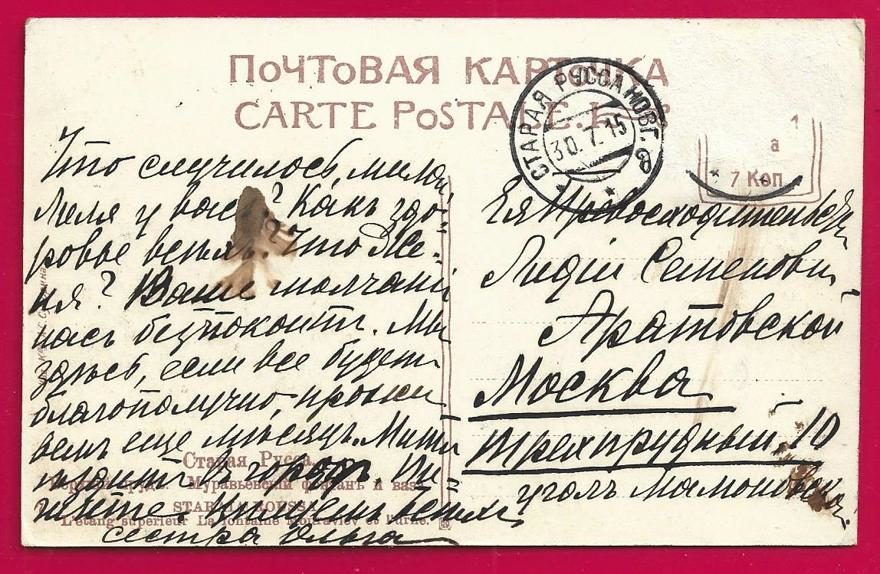 ПОЧТОВАЯ КАРТОЧКА
CARTE POSTALE.
СТАРАЯ РУССА НОВГ.
30.7.15
1
а
7 Коп
Что случилось, милая
Леля у васъ? Какъ здо-
ровье всѣхъ. Что Же-
ня? Ваше молчаніе
насъ безпокоитъ. Мы
здѣсь, если все будетъ
благополучно, прожи
вемъ еще мѣсяцъ. Митя
ѣздитъ въ городъ. Пи-
шите. Цѣлуемъ всѣхъ
сестра Ольга
Ея Превосходительству
Лидіи Семеновнѣ
Аратовской
Москва
Трехпрудный 10
уголъ Мамоновской
Старая Русса.
Муравьевскій фонтанъ и ваза.
STARAIA ROUSSA
L'étang supérieur La fontaine Mouraviev et l'urne.